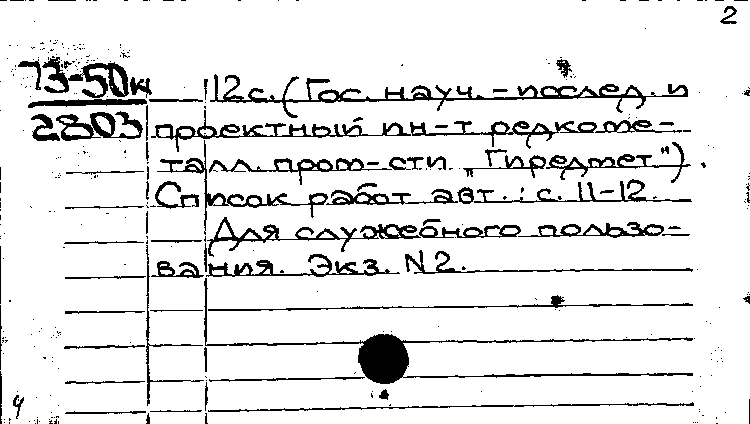 2
73-50к
2803
12с. (Гос. науч.-исслед. и
проектный ин-т редкоме-
талл. пром-сти „Гиредмет").
Список работ авт.: с. 11-12.
Для служебного пользо-
вания. Экз. N2.